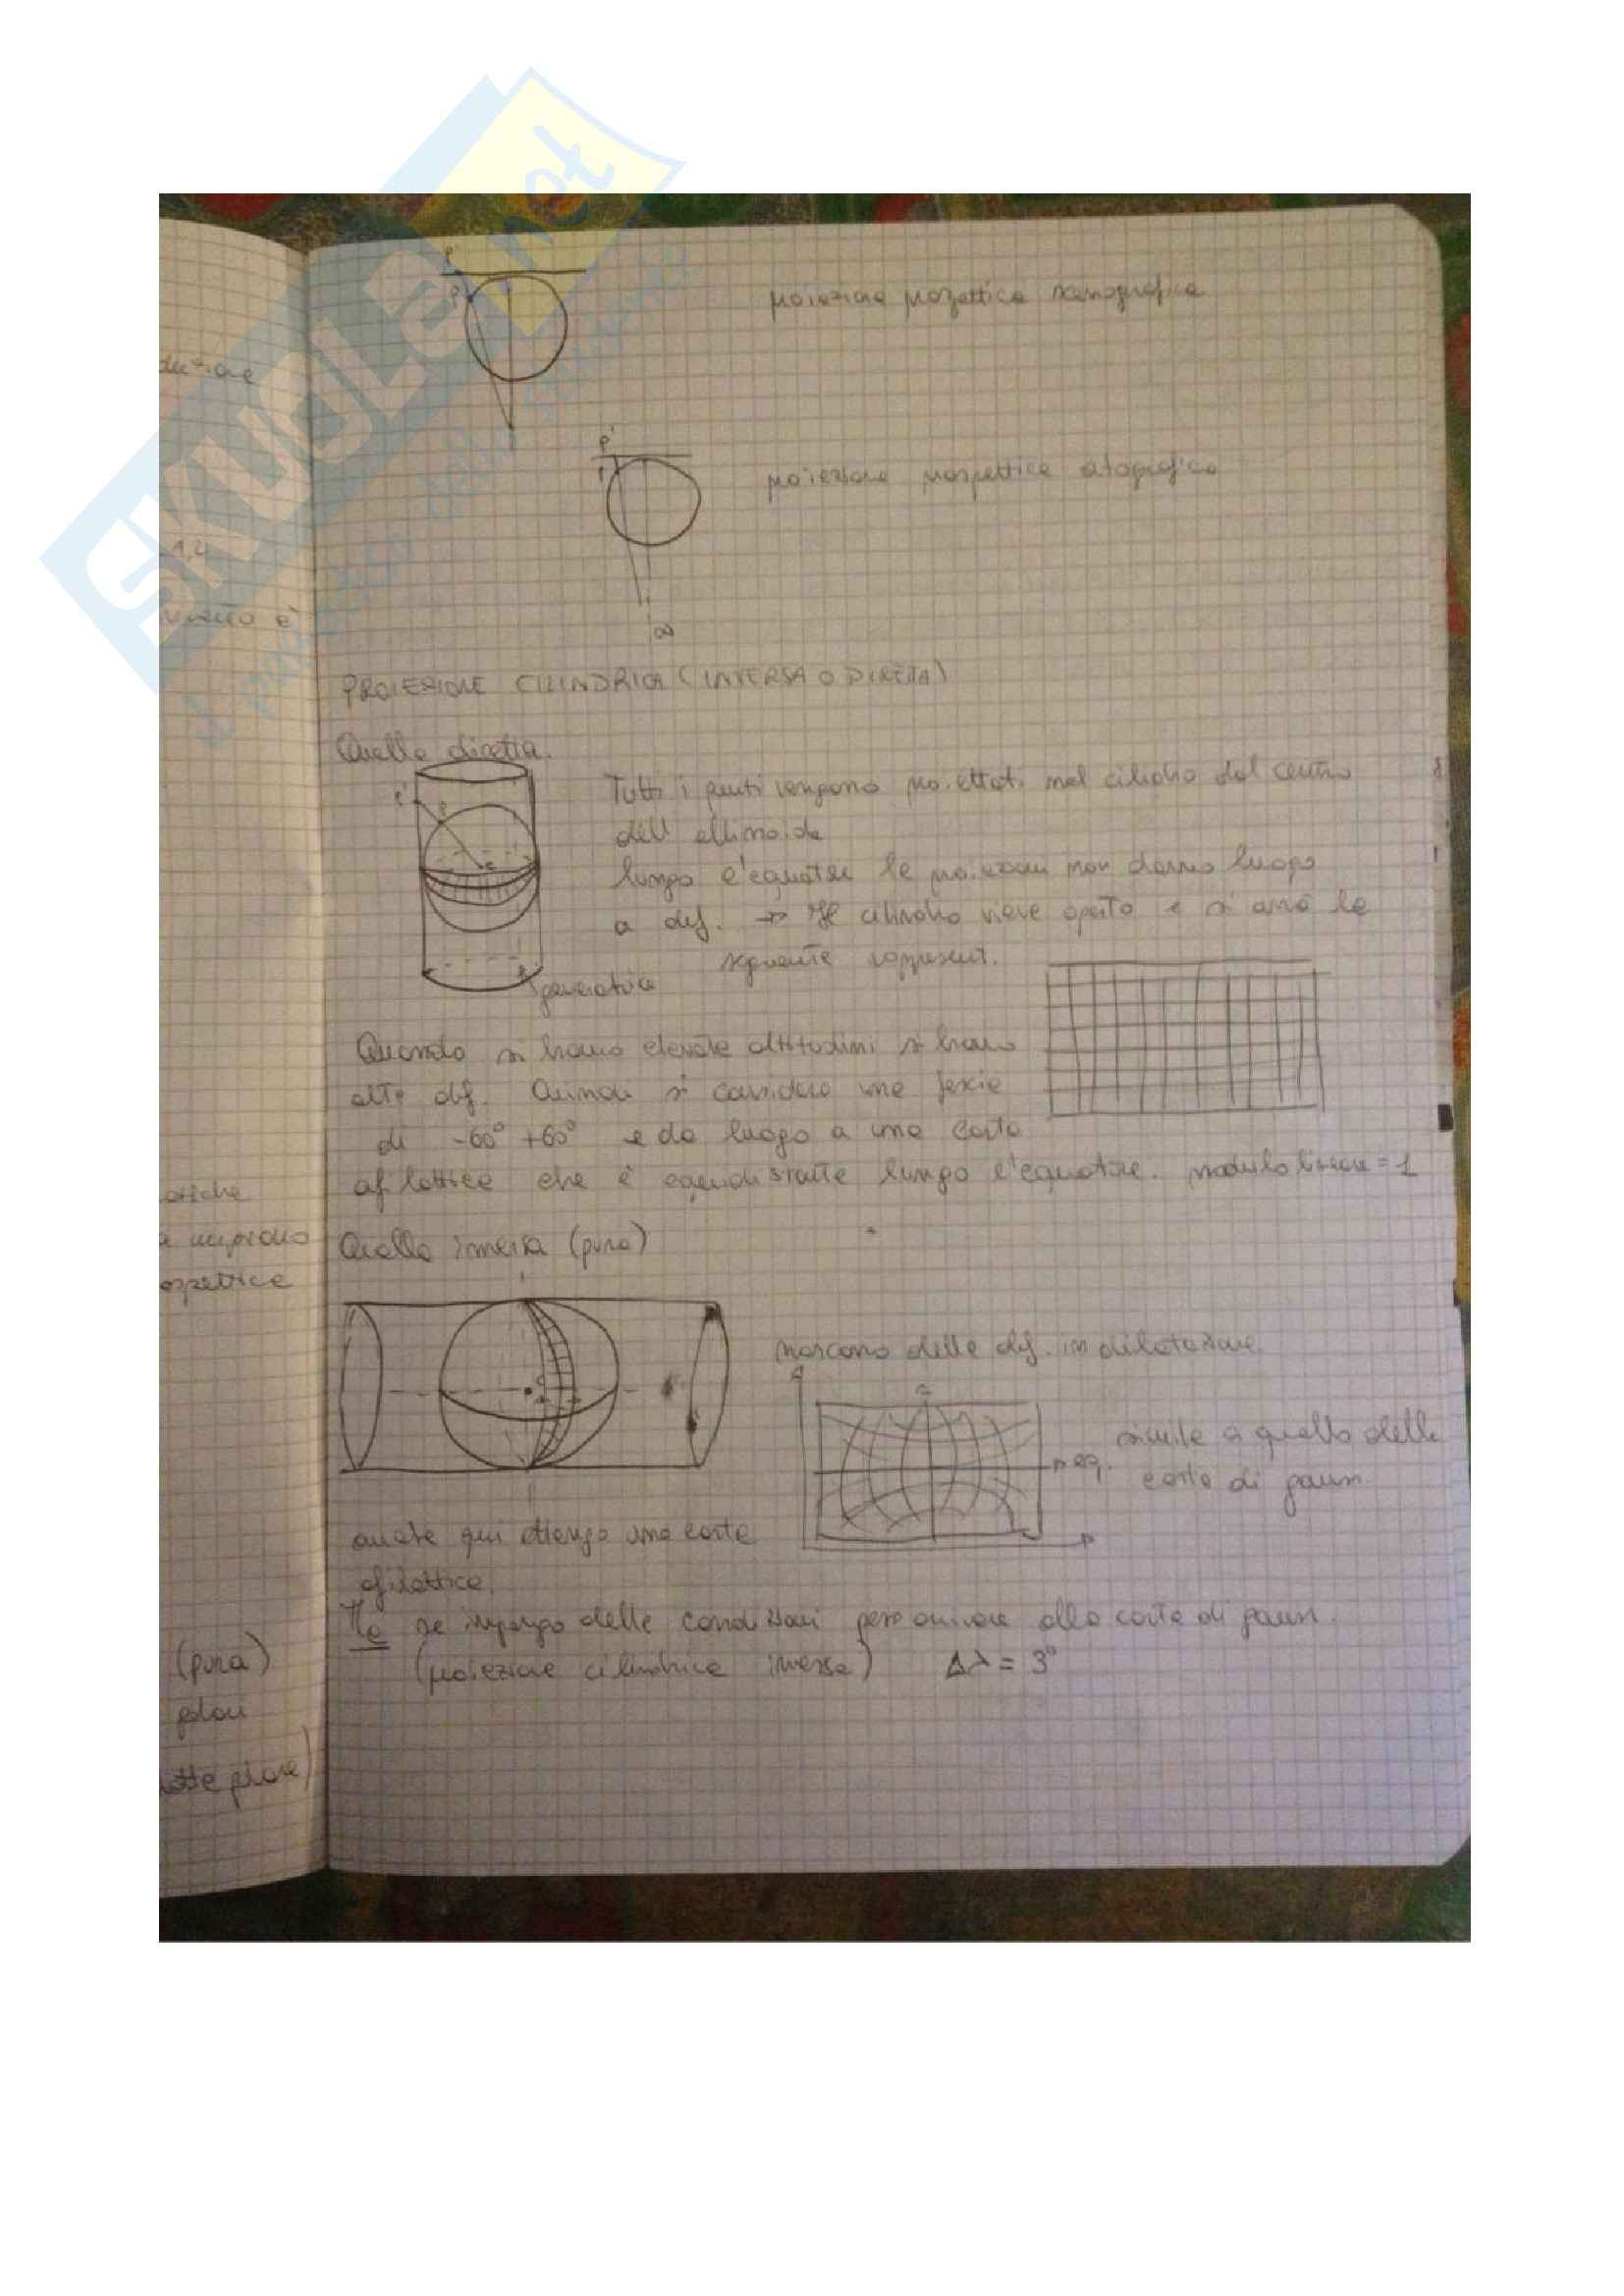 SKUOLA.net
il paradiso dello studente
P'
P
proiezione prospettica scenografica
P'
P
proiezione prospettica ortografica
∞
PROIEZIONE CILINDRICA (INVERSA O DIRETTA)
Quella diretta.
P'
P
c
generatrice
Tutti i punti vengono proiettati nel cilindro dal centro
dell'ellissoide
lungo l'equatore le proiezioni non danno luogo
a def. → Il cilindro viene aperto e si avrà la
seguente rappresent.
Quando si hanno elevate altitudini si hanno
alte def. Quindi si considera una fascia
di -60° +60° e da luogo a una carta
afilattica che è equidistante lungo l'equatore. modulo lineare = 1
Quella inversa (pura)
c
nascono delle def. in dilatazione.
eq.
simile a quella delle
carte di gauss
anche qui ottengo una carta
afilattica.
Ma se impongo delle condizioni posso arrivare alla carta di gauss.
(proiezione cilindrica inversa) Δλ = 3°
duzione
1,4
è
prospettica
(pura)
polari